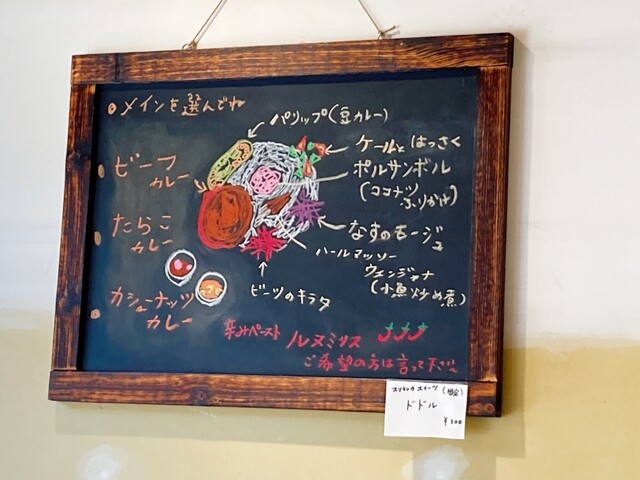 メインを選んでね
ビーフ
カレー
たらこ
カレー
カシューナッツ
カレー
パリップ(豆カレー)
ケールと はっさく
ポルサンボル
(ココナツ
ふりかけ)
なすのモージュ
ハールマッソー
ウェンジャナ
(小魚炒め煮)
ビーツのキラタ
辛みペースト ルヌミリス
ご希望の方は言って下さい
スリランカ スイーツ
ドドル
¥300